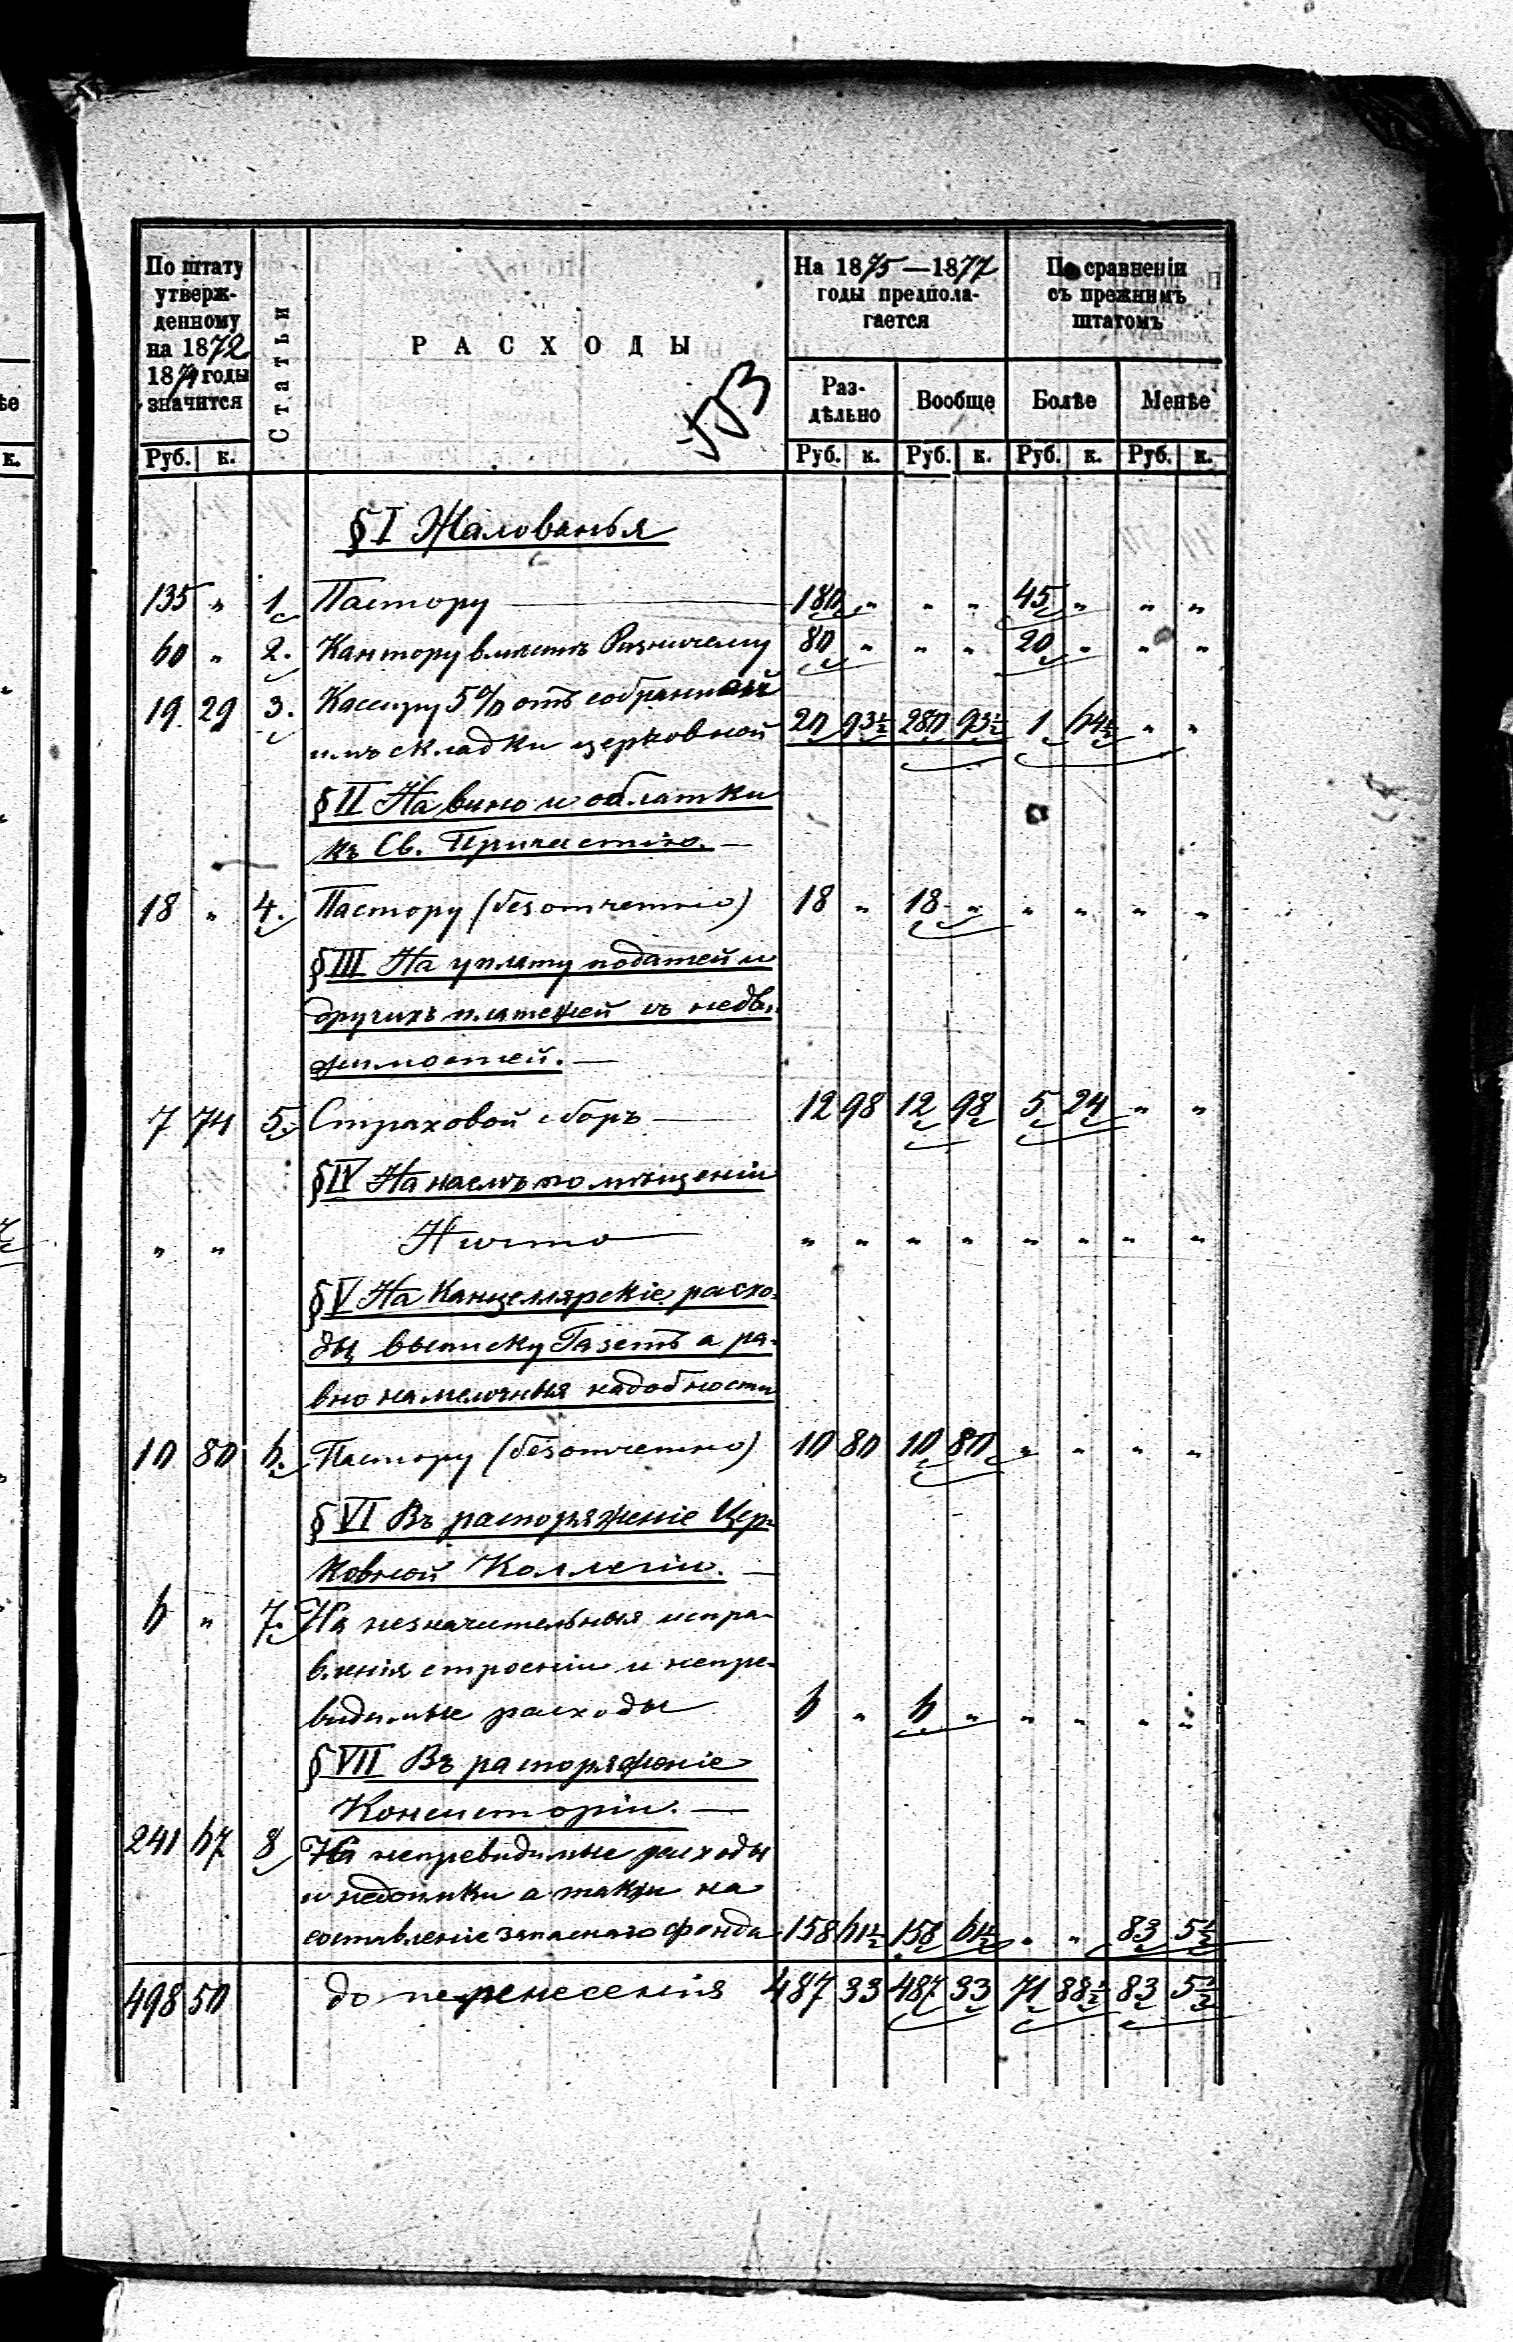 По штату утверж-денному на 1872 1874 годы значится
Статьи
РАСХОДЫ
На 1875—1877 годы предпола-гается
По сравненіи съ прежнимъ штатомъ
Раз-дѣльно Вообще Болѣе Менѣе
Руб. к. Руб. к. Руб. к. Руб. к. Руб. к.
§ I Жалованья
135 „ 1. Пастору 180 „ „ „ 45 „ „ „
60 „ 2. Кантору вмѣстѣ Ризничему 80 „ „ „ 20 „ „ „
19 29 3. Кассиру 5% отъ собранный
имъ складки церковной 20 93½ 280 93½ 1 64½ „ „
§ II На вино и облатки
къ Св. Причастію. —
18 „ 4. Пастору (безотчетно) 18 „ 18 „ „ „ „ „
§ III На уплату податей и
другихъ платежей съ недви-
жимостей. —
7 74 5. Страховой сборъ — 12 98 12 98 5 24 „ „
§ IV На наемъ помѣщеніи
„ „ Ничто „ „ „ „ „ „ „ „
§ V На Канцелярскіе расхо-
ды выписку Газетъ а ра-
вно на мелочныя надобности
10 80 6. Пастору (безотчетно) 10 80 10 80 „ „ „ „
§ VI Въ распоряженіе Цер-
ковной Коллегіи. —
6 „ 7. На незначительныя испра-
вленія строеніи и непре-
видимые расходы 6 „ 6 „ „ „ „ „
§ VII Въ распоряженіе
Консисторіи. —
241 67 8 На непревидимые расходы
и недоимки а также на
составленіе запаснаго фонда 158 61½ 158 61½ „ „ 83 5½
498 50 до перенесенія 487 33 487 33 71 88½ 83 5½